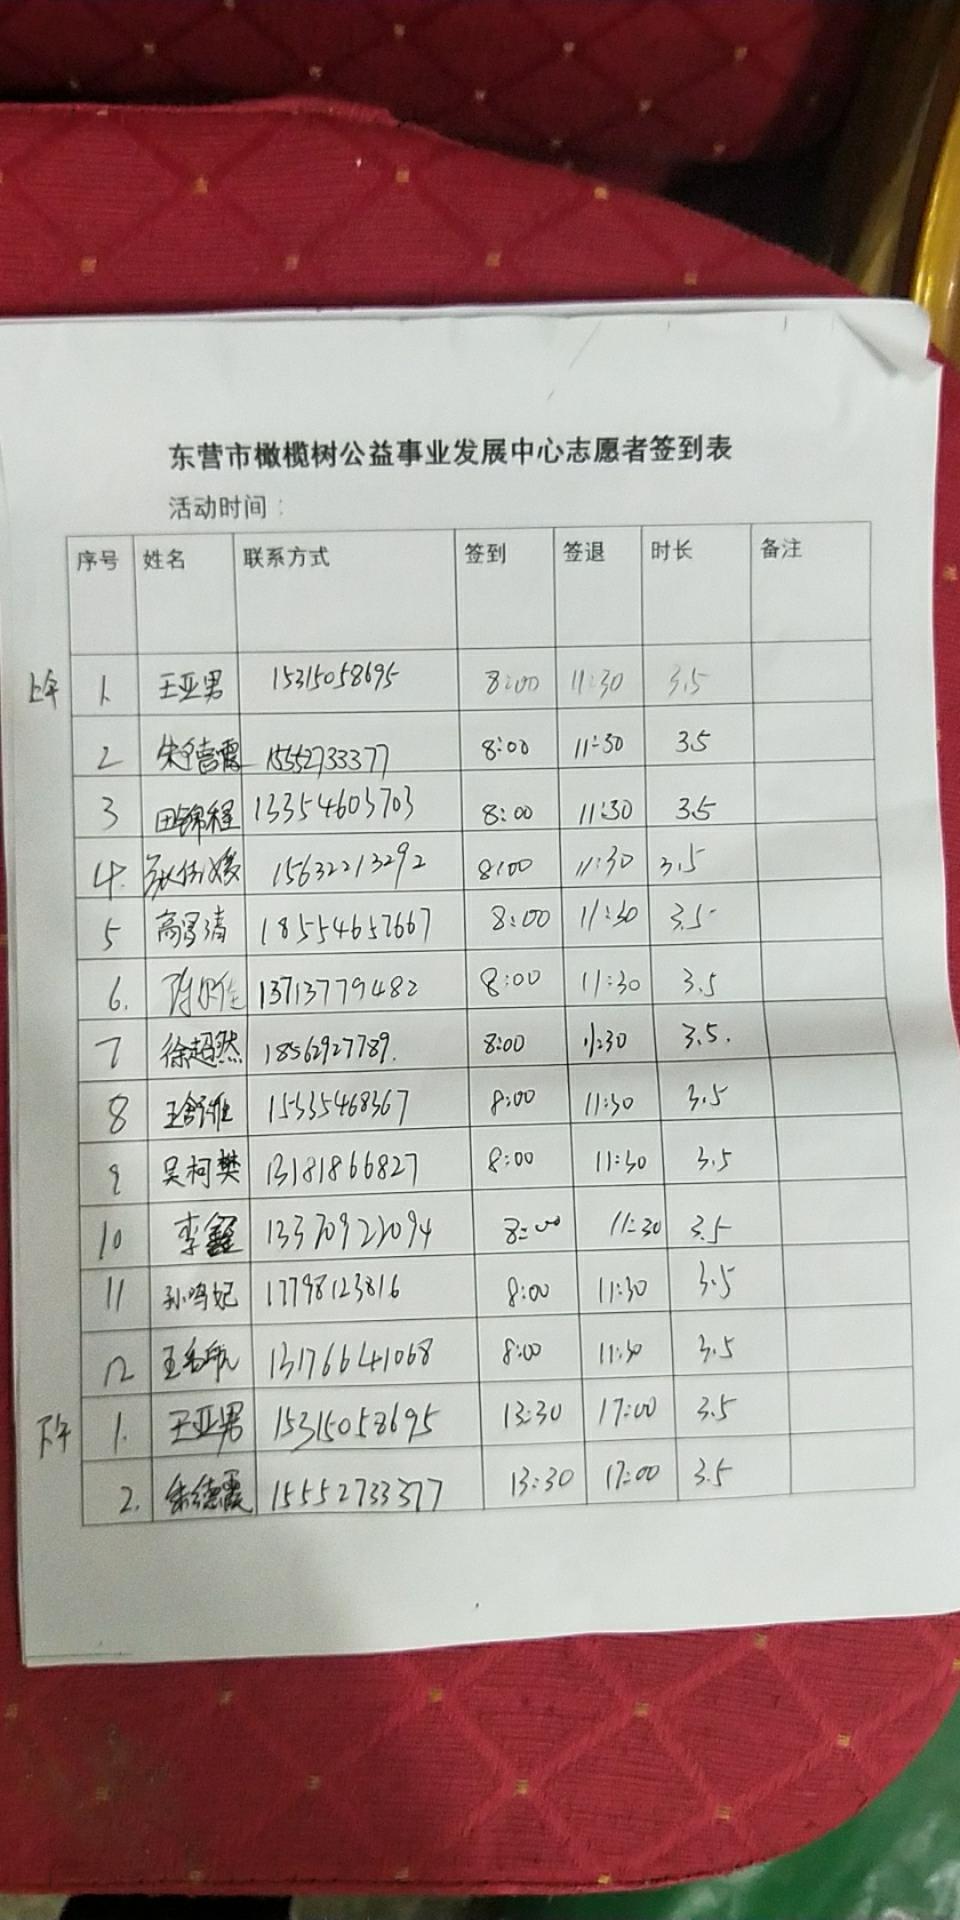 东营市橄榄树公益事业发展中心志愿者签到表
活动时间：
序号 姓名 联系方式 签到 签退 时长 备注
上午 1. 王亚男 15315058695 8:00 11:30 3.5
2 朱德霞 15552733377 8:00 11:30 3.5
3 田锦程 13354603703 8:00 11:30 3.5
4. 15632213292 8:00 11:30 3.5
5 18554657667 8:00 11:30 3.5
6. 13713779482 8:00 11:30 3.5
7 徐超然 18562927789. 8:00 11:30 3.5.
8 15335468367 8:00 11:30 3.5
9 吴柯樊 13181866827 8:00 11:30 3.5
10 李鑫 8:00 11:30 3.5
11 孙鸣妃 17798123816 8:00 11:30 3.5
12 13176641068 8:00 11:30 3.5
下午 1. 王亚男 15315058695 13:30 17:00 3.5
2. 朱德霞 15552733377 13:30 17:00 3.5